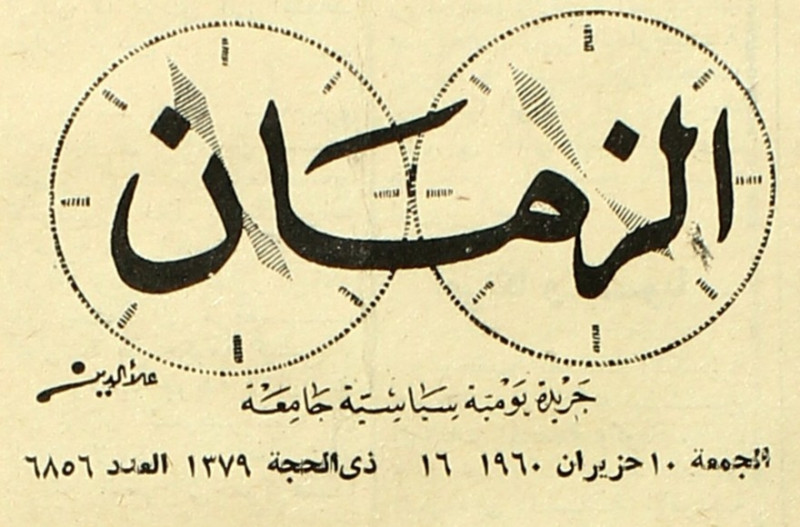 الزمان
علاء الدين
جريدة يومية سياسية جامعة
الجمعة ١٠ حزيران ١٩٦٠ ١٦ ذى الحجة ١٣٧٩ العدد ٦٨٥٦